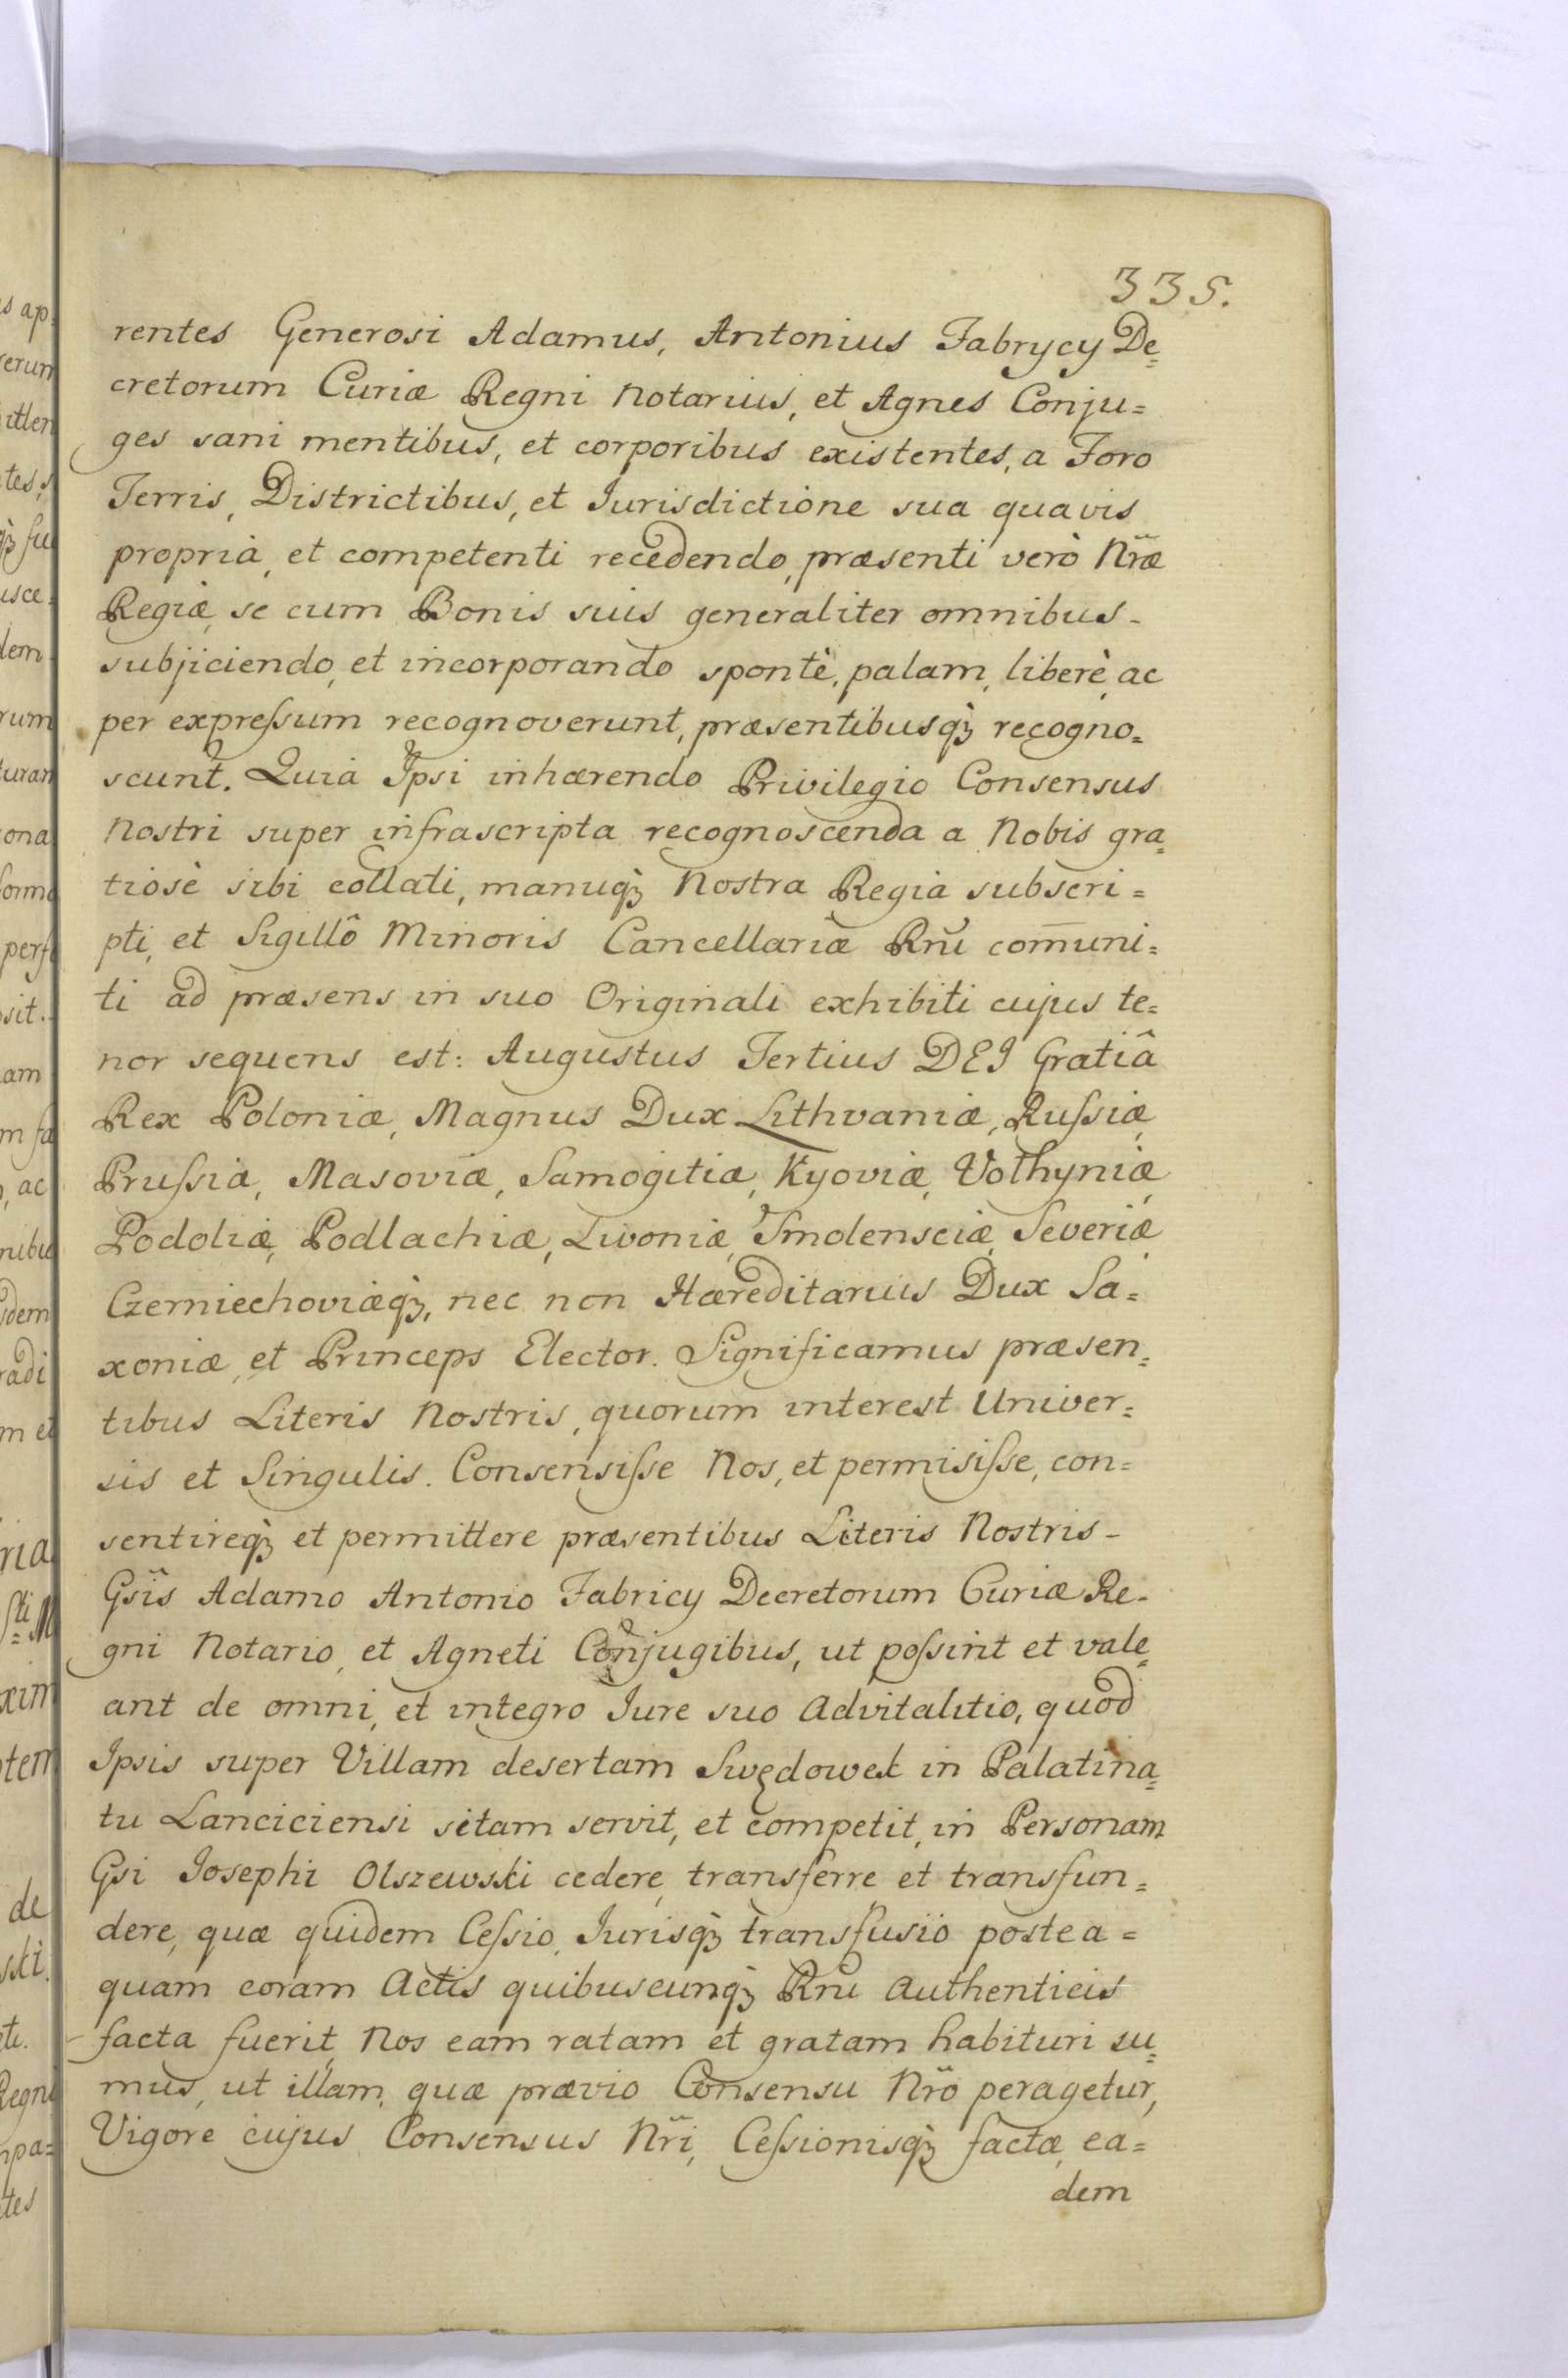 335.
rentes Generosi Adamus, Antonius Fabrycy De=
cretorum Curiæ Regni Notarius, et Agnes Conju=
ges sani mentibus, et corporibus existentes, a Foro
Terris, Districtibus, et Jurisdictione sua quavis
propria, et competenti recedendo, præsenti verò Nr̃æ
Regiæ, se cum Bonis suis generaliter omnibus -
subjiciendo, et incorporando spontè, palam, liberè, ac
per expreſsum recognoverunt, præsentibusq̀ꝫ recogno=
scunt. Quia Ipsi inhærendo Privilegio Consensus
Nostri super infrascripta recognoscenda a Nobis gra=
tiosè sibi collati, manuq̀ꝫ Nostra Regia subscri=
pti, et Sigillô Minoris Cancellariæ Rñi com̄uni=
ti ad præsens in suo Originali exhibiti cujus te=
nor sequens est: Augustus Tertius DEI Gratiâ
Rex Poloniæ, Magnus Dux Lithvaniæ, Ruſsiæ,
Pruſsiæ, Masoviæ, Samogitiæ, Kyoviæ, Volhyniæ,
Podoliæ, Podlachiæ, Livoniæ, Smolensciæ, Severiæ,
Czerniechoviæq̀ꝫ, nec non Hæreditarius Dux Sa=
xoniæ, et Princeps Elector. Significamus præsen=
tibus Literis Nostris, quorum interest Univer=
sis et Singulis. Consensiſse Nos, et permisiſse, con=
sentireq̀ꝫ et permittere præsentibus Literis Nostris -
Gsĩs Adamo Antonio Fabricy Decretorum Curiæ Re-
gni Notario, et Agneti Conjugibus, ut poſsint et vale=
ant de omni, et integro Jure suo Advitalitio, quod
Ipsis super Villam desertam Swędowek in Palatina=
tu Lanciciensi sitam servit, et competit, in Personam
Gsi Josephi Olszewski cedere, transferre et transfun=
dere, quæ quidem Ceſsio, Jurisq̀ꝫ transfusio postea=
quam coram Actis quibuscunq̀ꝫ Rñi Authenticis
facta fuerit, Nos eam ratam et gratam habituri su=
mus, ut illam, quæ prævio Consensu Nr̃o peragetur,
Vigore cujus Consensus Nr̃i, Ceſsionisq̀ꝫ factæ, ea=
dem